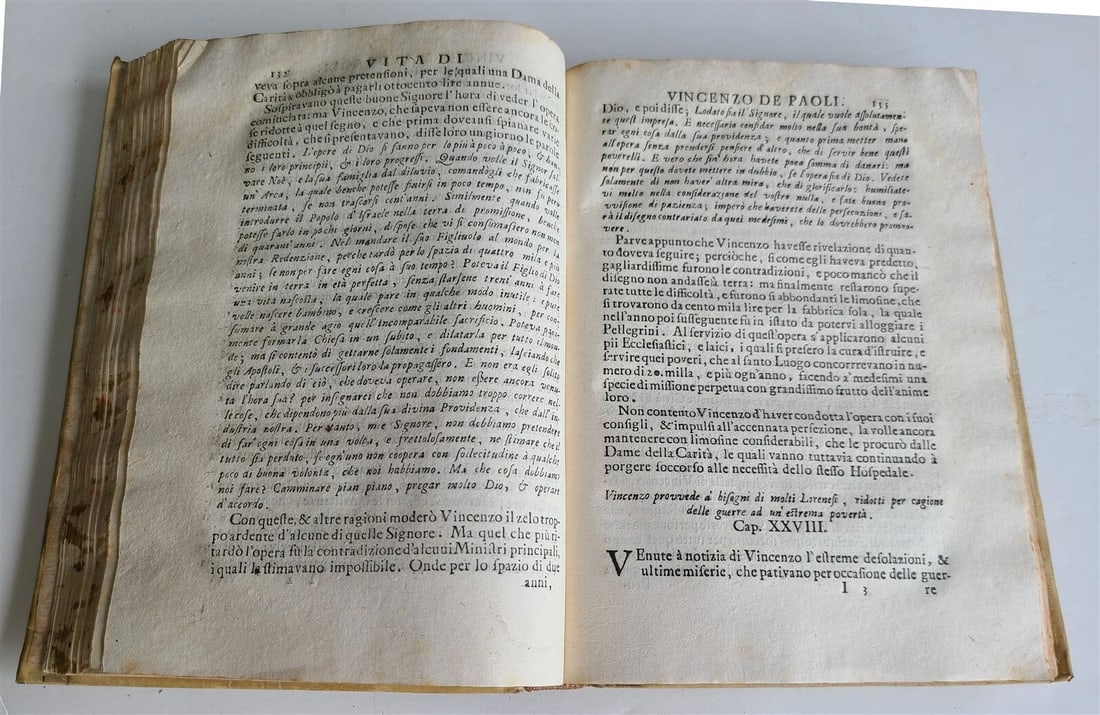 132
VITA DI
veva sopra alcune pretensioni, per le quali una Dama della
Carità s'obbligò à pagarli ottocento lire annue.
Sospiravano queste buone Signore l'hora di veder l'opera
cominciata: ma Vincenzo, che sapeva non essere ancora le co-
se ridotte à quel segno, e che prima doveansi spianare varie
difficoltà, che si presentavano, disse loro un giorno le parole
seguenti. L'opere di Dio si fanno per lo più à poco à poco: & han-
no i loro principii, & i loro progressi. Quando volle il Signor sal-
vare Noè, e la sua famiglia dal diluvio, comandògli che fabricasse
un' Arca, la quale benche potesse finirsi in poco tempo, non fu però
terminata, se non trascorsi cent'anni. Similmente quando volle
introdurre il Popolo d'Israele nella terra di promissione, benche
potesse farlo in pochi giorni, dispose che vi si consumassero non men
di quarant'anni. Nel mandare il suo Figliuolo al mondo per la
nostra Redenzione, perche tardò per lo spazio di quattro mila e più
anni; se non per fare ogni cosa à suo tempo? Poteva il Figlio di Dio
venire in terra in età perfetta, senza starsene trent'anni à fare
una vita nascosta, la quale pare in qualche modo inutile: e pure
volle nascere bambino, e crescere come gli altri huomini, per con-
sumare à grande agio quell'incomparabile sacrificio. Poteva pari-
mente formarla Chiesa in un subito, e dilatarla per tutto il mon-
do; ma si contentò di gettarne solamente i fondamenti, lasciando che
gli Apostoli, & i successori loro la propagassero. E non era egli solito
dire parlando di ciò, che doveva operare, non essere ancora venu-
ta l'hora sua? per insegnarci che non dobbiamo troppo correre nel-
le cose, che dipendono più dalla sua divina Providenza, che dall'in-
dustria nostra. Per tanto, mie Signore, non dobbiamo pretendere
di far' ogni cosa in una volta, e frettolosamente, ne stimare che il
tutto sia perduto, se ogn'uno non coopera con sollecitudine à qualche
poco di buona volontà, che noi habbiamo. Ma che cosa dobbiamo
noi fare? Camminare pian piano, pregar molto Dio, & operare
d'accordo.
Con queste, & altre ragioni moderò Vincenzo il zelo trop-
po ardente d'alcune di quelle Signore. Ma quel che più ri-
tardò l'opera fù la contradizione d'alcuni Ministri principali,
i quali la stimavano impossibile. Onde per lo spazio di due
anni,
VINCENZO DE PAOLI. 133
Dio, e poi disse; Lodato sia il Signore, il quale vuole assolutamen-
te quest' impresa. E necessario confidar molto nella sua bontà, spe-
rar ogni cosa dalla sua providenza; e quanto prima metter mano
all'opera senza prendersi pensiere d'altro, che di servir bene questi
poverelli. E vero che sin' hora havete poca somma di danari: ma
non per questo dovete mettere in dubbio, se l'opera sia di Dio. Vedete
solamente di non haver' altra mira, che di glorificarlo: humiliate-
vi molto nella considerazione del vostro nulla, e fate buona pro-
vvisione di pazienza; imperò che haverete delle persecuzioni, e sa-
rà il disegno contrariato da quei medesimi, che lo dovrebbero promo-
vere.
Parve appunto che Vincenzo havesse rivelazione di quan-
to doveva seguire; perciòche, si come egli haveva predetto,
gagliardissime furono le contradizioni, e poco mancò che il
disegno non andasse à terra: ma finalmente restarono supe-
rate tutte le difficoltà, e furono sì abbondanti le limosine, che
si trovarono da cento mila lire per la fabbrica sola, la quale
nell'anno poi susseguente fù in istato da potervi alloggiare i
Pellegrini. Al servizio di quest'opera s'applicarono alcuni
pii Ecclesiastici, e laici, i quali si presero la cura d'istruire, e
servire quei poveri, che al santo Luogo concorrrevano in nu-
mero di 20. milla, e più ogn'anno, facendo a' medesimi una
specie di missione perpetua con grandissimo frutto dell'anime
loro.
Non contento Vincenzo d'haver condotta l'opera con i suoi
consigli, & impulsi all'accennata perfezione, la volle ancora
mantenere con limosine considerabili, che le procurò dalle
Dame della Carità, le quali vanno tuttavia continuando à
porgere soccorso alle necessità dello stesso Hospedale.
Vincenzo provvede a' bisogni di molti Lorenesi, ridotti per cagione
delle guerre ad un' estrema povertà.
Cap. XXVIII.
VEnute à notizia di Vincenzo l'estreme desolazioni, &
ultime miserie, che pativano per occasione delle guer-
I 3 re